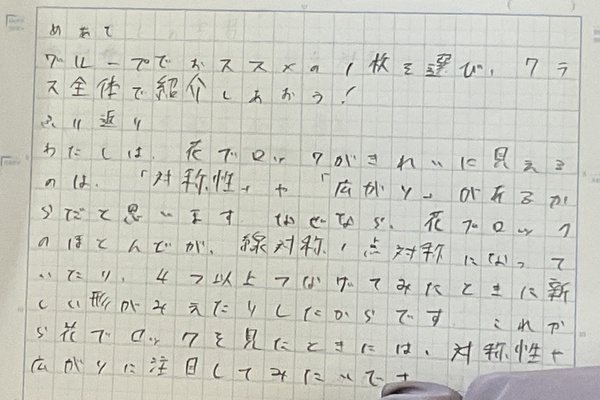 めあて
グループでおススメの1枚を選び、クラ
ス全体で紹介しあおう!
ふり返り
わたしは、花ブロックがきれいに見える
のは、「対称性」や「広がり」があるか
らだと思います。なぜなら、花ブロック
のほとんどが、線対称、点対称になって
いたり、4つ以上つなげてみたときに新
しい形がみえたりしたからです。これか
ら花ブロックを見たときには、対称性や
広がりに注目してみたいです